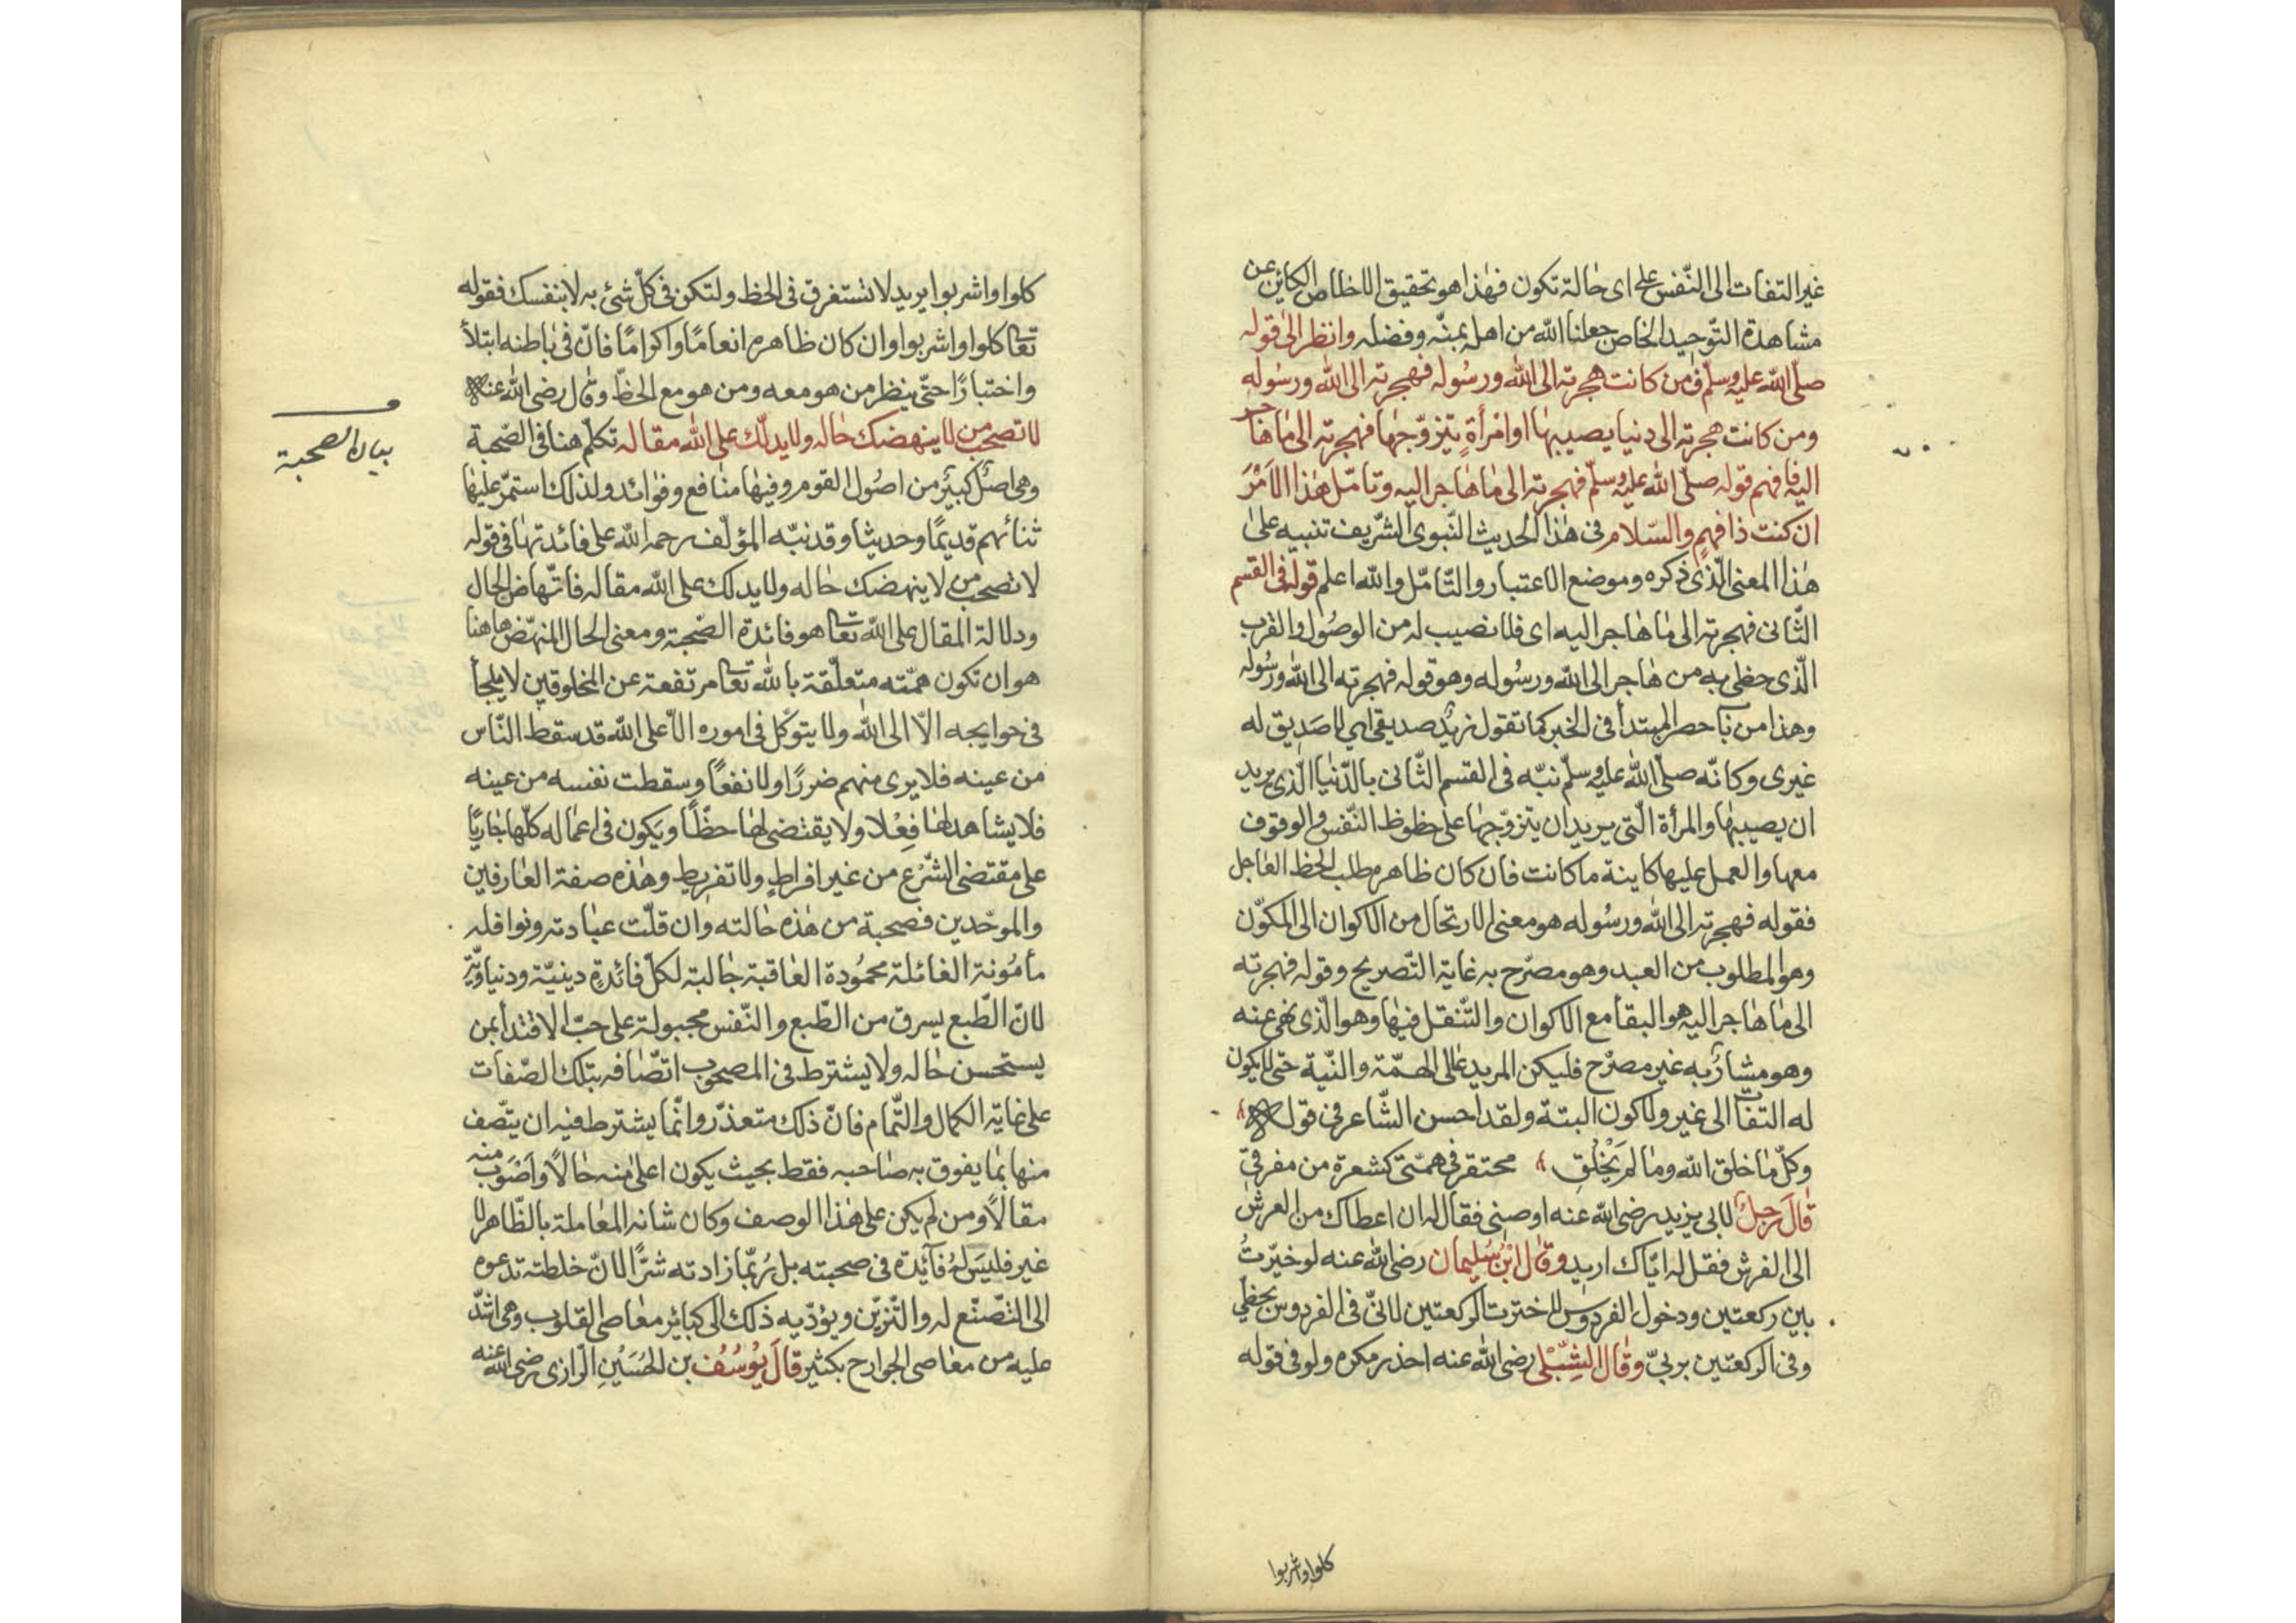 غير التفات الى النّفس على اى حالة تكون فهذا هو تحقيق الاخلاص الكائن عن
مشاهدة التّوحيد الخاص جعلنا الله من اهله بمنّه وفضله وانظر الى قوله
صلّى الله عليه وسلّم فمن كانت هجرته الى الله ورسُوله فهجرته الى الله ورسُوله
ومن كانت هجرته الى دنيا يصيبها او امْرأةٍ يتزوّجها فهجرته الى ما هاجر
اليه فافهم قوله صلّى الله عليه وسلّم فهجرته الى ما هاجر اليه وتامّل هذا الاَمْرَ
ان كنت ذا فهمٍ والسّلام فى هذا الحديث النّبوى الشّريف تنبيه على
هذا المعنى الّذى ذكره وموضع الاعتبار والتّامّل والله اعلم قوله فى القسم
الثّانى فهجرته الى ما هاجر اليه اى فلا نصيب له من الوصُول والقرب
الّذى حظى به من هاجر الى الله ورسُوله وهو قوله فهجرته الى الله ورسُوله
وهذا من باب حصر المبتدأ فى الخبر كما تقول زيدٌ صديقى اى لا صَدِيق له
غيرى وكانّه صلّى الله عليه وسلّم نبّه فى القسم الثّانى بالدّنيا الّذى يريد
ان يصيبها والمرأة الّتى يريد ان يتزوّجها على حظوظ النّفس والوقوف
معها والعمل عليها كاينة ما كانت فان كان ظاهره طلب الحظ العاجل
فقوله فهجرته الى الله ورسُوله هو معنى الارتحال من الاكوان الى المكوّن
وهو المطلوب من العبد وهو مصرّح به غاية التّصريح وقوله فهجرته
الى ما هاجر اليه هو البقأ مع الاكوان والتّنقل فيها وهو الّذى نهى عنه
وهو مشارٌ به غير مصرّح فليكن المريد عالى الهمّة والنّية حتّى لا يكون
له التفات الى غير ولا كون البتة ولقد احسن الشّاعر فى قوله
وكلّ ما خلق الله وما لم يَخْلُقِ محتقر فى همّتى كشعرة من مفرقىّ
قَالَ رجلٌ لابى يزيد رضى الله عنه اوصنى فقال له ان اعطاك من العرش
الى الفرش فقل له ايّاك اريد وقال ابْنُ سُليمان رضى الله عنه لو خيّرتُ
بين ركعتين ودخول الفردوس لاخترت الركعتين لانّى فى الفردوس بحظى
وفى الركعتين بربىّ وقال الشِّبْلى رضى الله عنه احذر مكره ولو فى قوله
كلوا واشربوا
كلوا واشربوا يريد لا تستغرق فى الحظ ولتكن فى كلّ شئ به لا بنفسك فقوله
تعالى كلوا واشربوا وان كان ظاهره انعامًا واكرامًا فانّ فى باطنه ابتلأ
واختبارًا حتّى ينظر من هو معه ومن هو مع الحظّ وقال رضى الله عنه
لا تصحب من لا ينهضك حاله ولا يدلّك على الله مقاله تكلّم هنا فى الصّحبة
بيان الصحبة
وهى اصلٌ كبيرٌ من اصُول القوم وفيها منافع وفوائد ولذلك استمرّ عليها
ثنائهم قديمًا وحديثا وقد نبّه المؤلّف رحمه الله على فائدتها فى قوله
لا تصحب من لا ينهضك حاله ولا يدلك على الله مقاله فانّهاض الحال
ودلالة المقال على الله تعالى هو فائدة الصّحبة ومعنى الحال المنهّض هاهنا
هو ان تكون همّته متعلّقة بالله تعالى مرتفعة عن المخلوقين لا يلجأ
فى حوايجه الاّ الى الله ولا يتوكّل فى اموره الاّ على الله قد سقط النّاس
من عينه فلا يرى منهم ضررًا ولا نفعًا وسقطت نفسه من عينه
فلا يشاهد لها فِعْلا ولا يقتضى لها حظّاً ويكون فى اعماله كلّها جاريًا
على مقتضى الشّرْع من غير افراطٍ ولا تفريطٍ وهذه صفة العارفين
والموحّدين فصحبة من هذه حالته وان قلّت عبادته ونوافله
مأمُونة الغائلة محمُودة العاقبة جالبة لكلّ فائدةٍ دينيّة ودنياويّة
لانّ الطّبع يسرق من الطّبع والنّفس مجبولة على حبّ الاقتدأ بمن
يستحسن حاله ولا يشترط فى المصحوب اتصّافه بتلك الصّفات
على غاية الكمال والتّمام فانّ ذلك متعذّر وانّما يشترط فيه ان يتّصف
منها بما يفوق به صاحبه فقط بحيث يكون اعلى منه حالاً واَصْوَب منه
مقالاً ومن لم يكن على هذا الوصف وكان شانه المعاملة بالظّاهر لا
غير فليسَ لهُ فآئدة فى صحبته بل رُبّما زادته شرًّا لانّ خلطته تدعوه
الى التّصنّع له والتّزيّن ويؤدّيه ذلك الى كبائر معاصى القلوب وهى اشدّ
عليه من معاصى الجوارح بكثير قالَ يُوسُفُ بن الحُسَيْنِ الرّازى رضى الله عنه